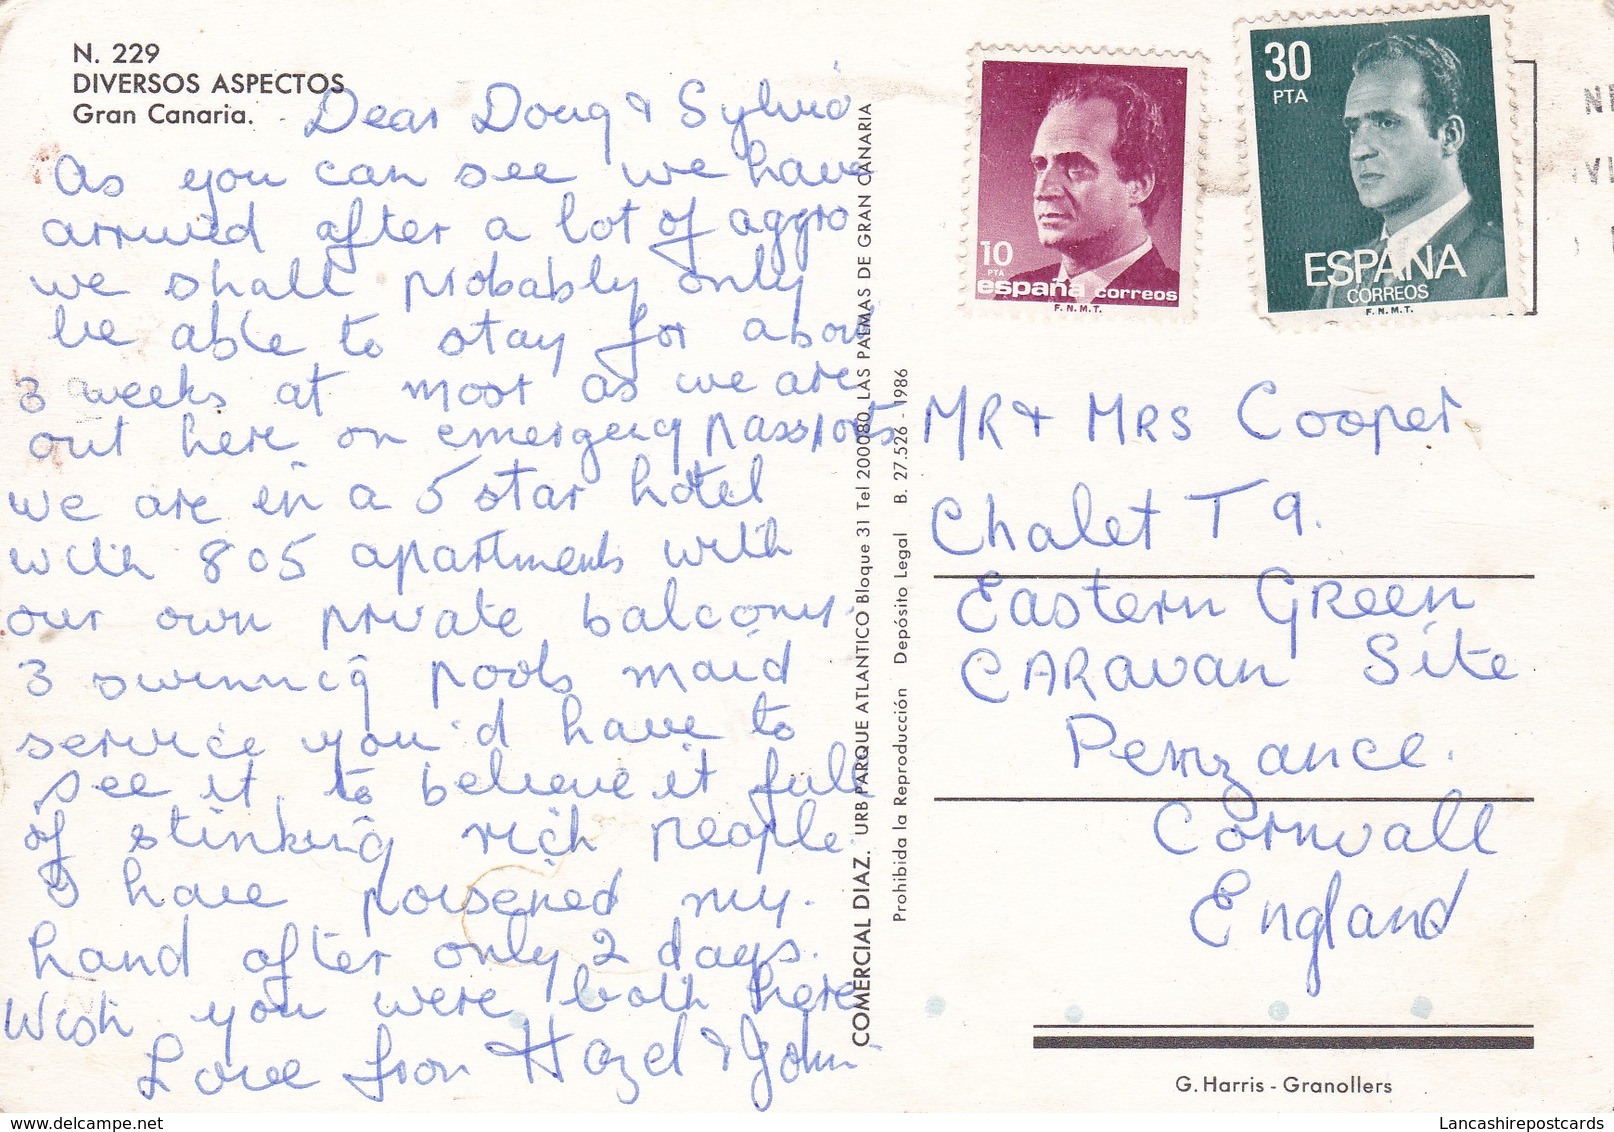 N. 229
DIVERSOS ASPECTOS
Gran Canaria.
Dear Doug & Sylvia
As you can see we have
arrived after a lot of aggro
we shall probably only
be able to stay for about
3 weeks at most as we are
out here on emergency passports
we are in a 5 star hotel
with 805 apartments with
our own private balcony.
3 swimming pools maid
service you'd have to
see it to believe it full
of stinking rich people.
I have poisened my.
hand after only 2 days.
Wish you were both here
Love from Hazel & John
COMERCIAL DIAZ. URB PARQUE ATLANTICO Bloque 31 Tel 200080 LAS PALMAS DE GRAN CANARIA
Prohibida la Reproducción Depósito Legal B. 27.526 - 1986
10
PTA
españa correos
F.N.M.T.
30
PTA
ESPAÑA
CORREOS
F.N.M.T.
MR & MRS Cooper
Chalet T 9.
Eastern Green
CARavan Site
Penzance.
Cornwall
England
G. Harris - Granollers
Lancashirepostcards
delcampe.net